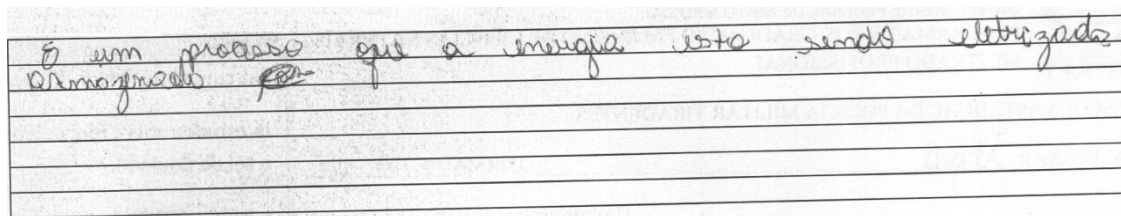 É um processo que a energia esta sendo eletrizada
armazinada